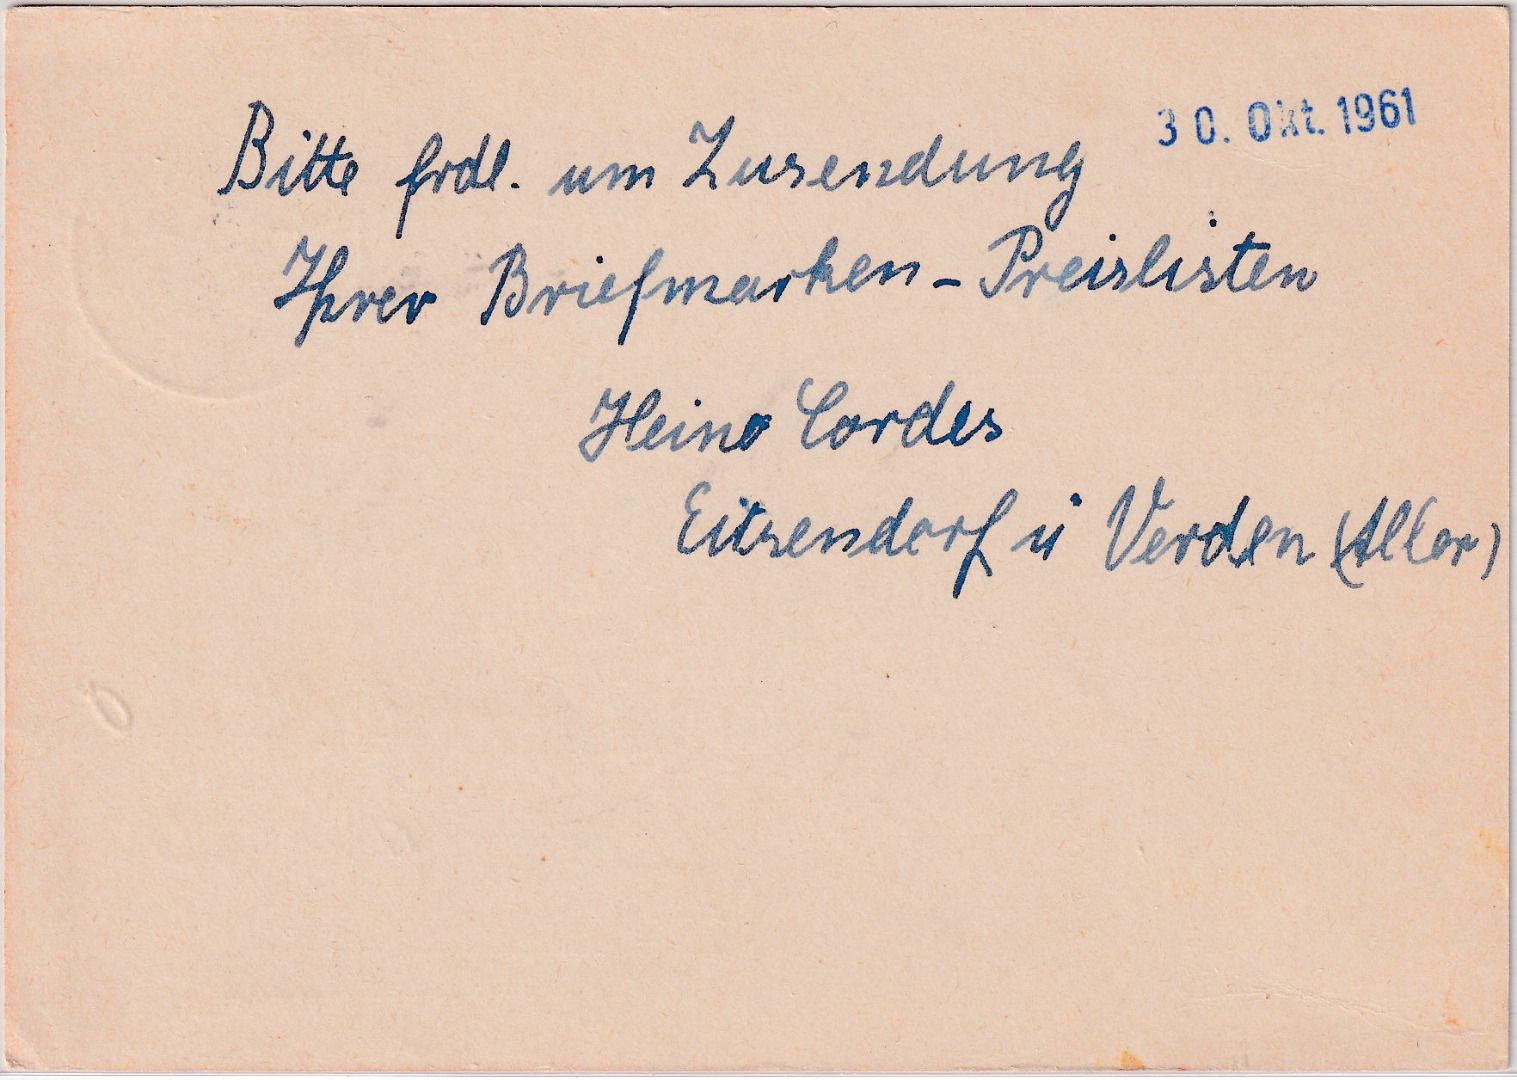 30. Okt. 1961
Bitte frdl. um Zusendung
Ihrer Briefmarken-Preislisten
Heino Cordes
Eitzendorf ü Verden (Aller)